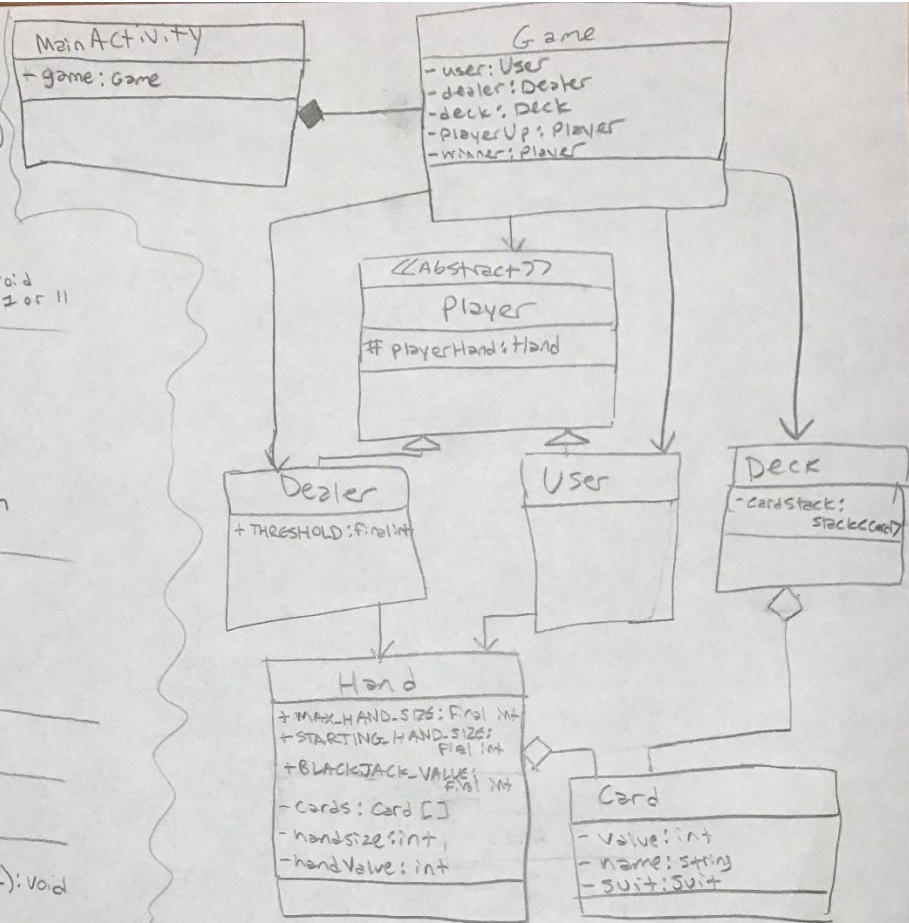 MainActivity
+ game: Game
Game
- user: User
- dealer: Dealer
- deck: Deck
- playerUp: Player
- winner: Player
oid
1 or 11
<<Abstract>>
Player
# playerHand: Hand
Dealer
+ THRESHOLD: final int
User
Deck
- cardStack:
stack<Card>
n
Hand
+ MAX_HAND_SIZE: Final int
+ STARTING_HAND_SIZE:
Final int
+ BLACKJACK_VALUE:
Final int
- cards: Card []
- handsize: int
- handValue: int
Card
- value: int
- name: String
- suit: Suit
): void